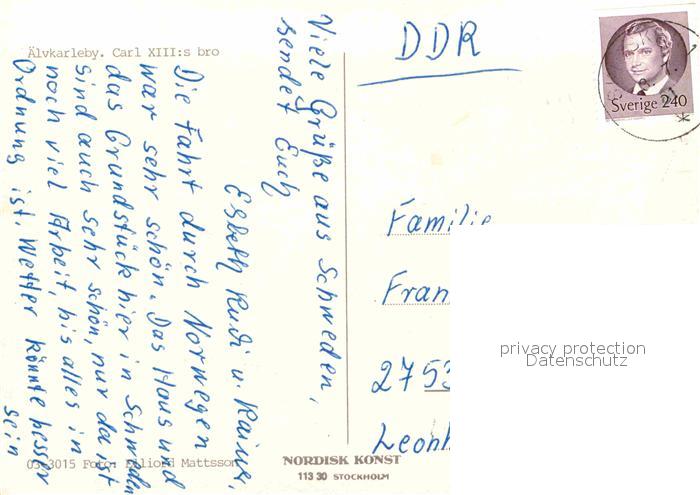 Älvkarleby. Carl XIII:s bro
Viele Grüße aus Schweden,
sendet Euch
Elsbeth Rudi u. Rainer.
Die Fahrt durch Norwegen
war sehr schön. Das Haus und
das Grundstück hier in Schweden
sind auch sehr schön, nur da ist
noch viel Arbeit, bis alles in
Ordnung ist. Wetter könnte besser
sein
DDR
Sverige 240
Familie
Fran
2753
Leonh
privacy protection
Datenschutz
03-3015 Foto: Mattsson
NORDISK KONST
113 30 STOCKHOLM